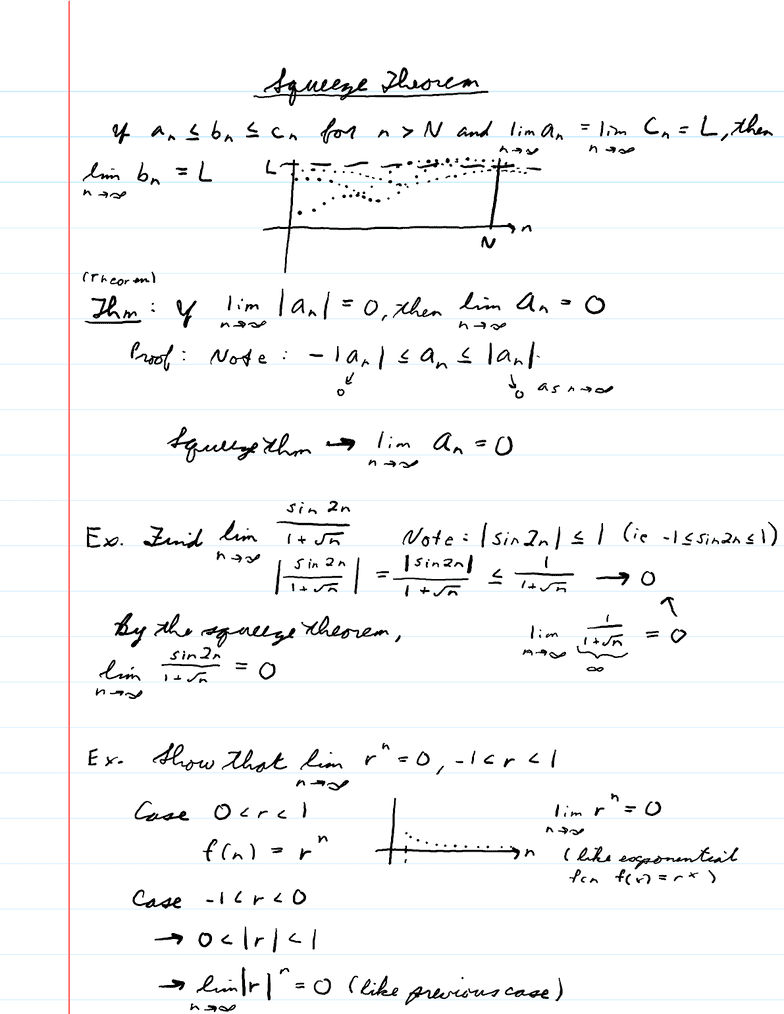 Squeeze Theorem
If aₙ ≤ bₙ ≤ cₙ for n > N and lim_{n→∞} aₙ = lim_{n→∞} Cₙ = L, then
lim_{n→∞} bₙ = L
L
n
N
(Theorem)
Thm: If lim_{n→∞} |aₙ| = 0, then lim_{n→∞} aₙ = 0
Proof: Note: -|aₙ| ≤ aₙ ≤ |aₙ|.
↓ 0 ↓ 0 as n→∞
Squeeze thm → lim_{n→∞} aₙ = 0
Ex. Find lim_{n→∞} sin 2n / (1 + √n) Note: |sin 2n| ≤ 1 (ie -1 ≤ sin 2n ≤ 1)
|sin 2n / (1 + √n)| = |sin 2n| / (1 + √n) ≤ 1 / (1 + √n) → 0
↑
By the squeeze theorem, lim_{n→∞} 1 / (1 + √n) = 0
∞
lim_{n→∞} sin 2n / (1 + √n) = 0
Ex. Show that lim_{n→∞} rⁿ = 0, -1 < r < 1
Case 0 < r < 1 lim_{n→∞} rⁿ = 0
f(n) = rⁿ
n
(like exponential
fcn f(x) = rˣ)
Case -1 < r < 0
→ 0 < |r| < 1
→ lim_{n→∞} |r|ⁿ = 0 (like previous case)